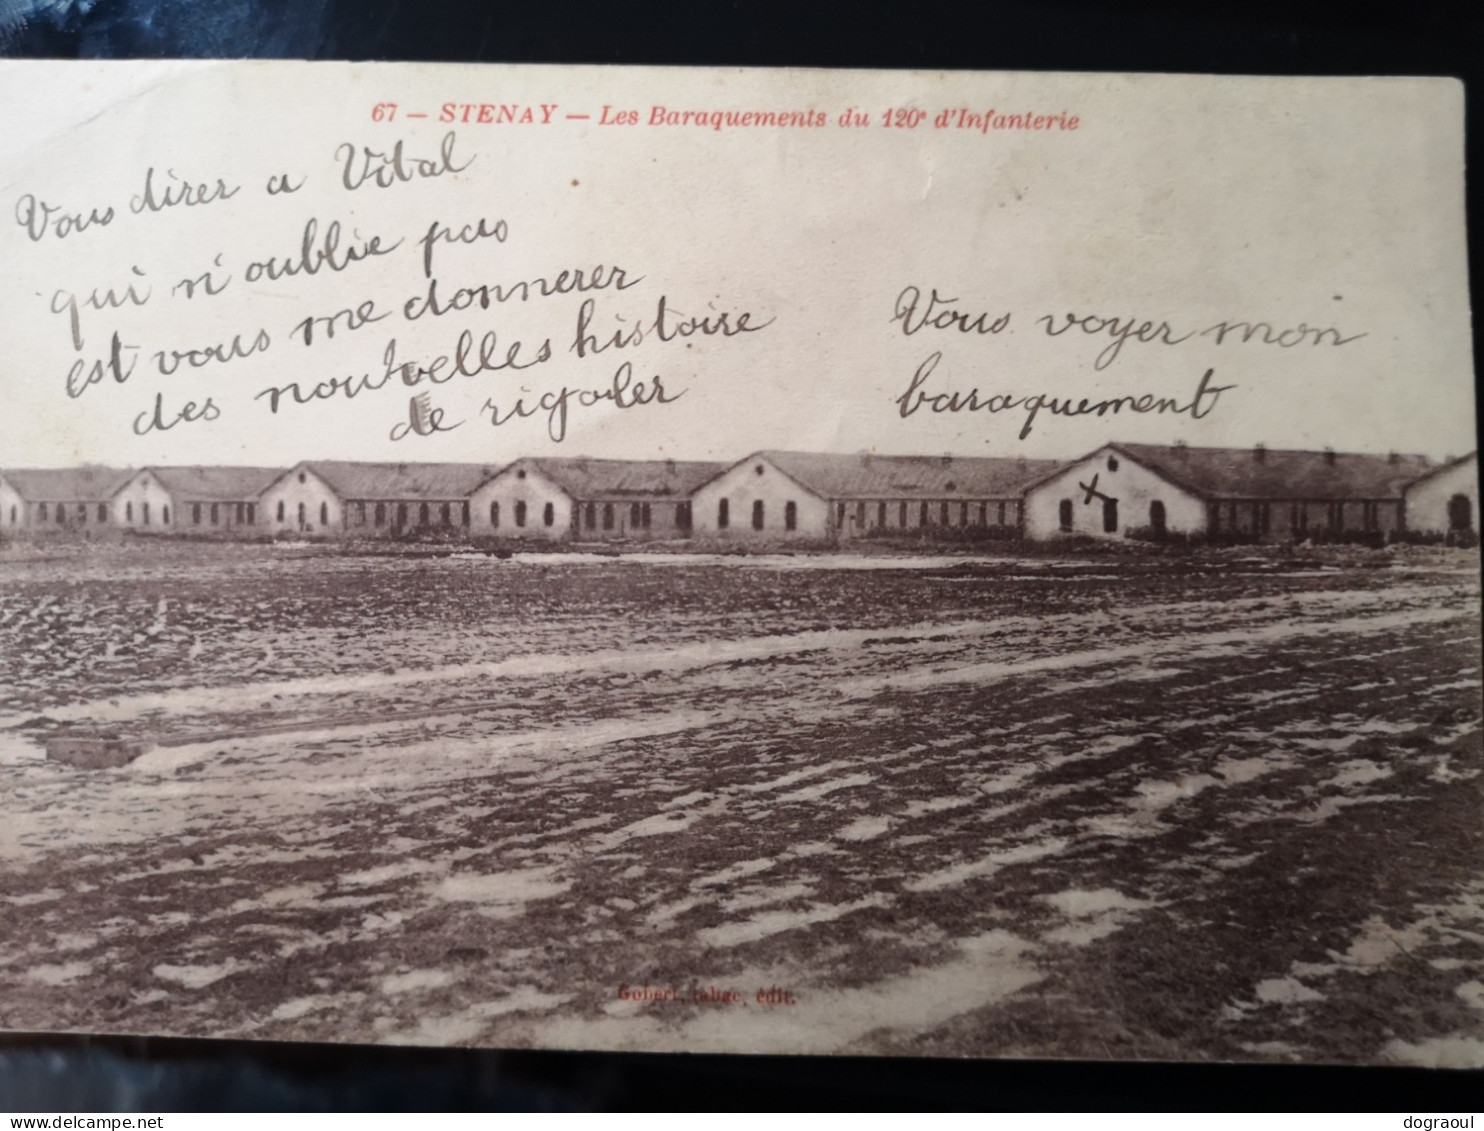 67 — STENAY — Les Baraquements du 120e d'Infanterie
Vous direr a Vital
qui n'oublie pas
est vous me donnerer
des nouvelles histoire
de rigoler
Vous voyer mon
baraquement
X
Gobert, tabac, édit.
dograoul